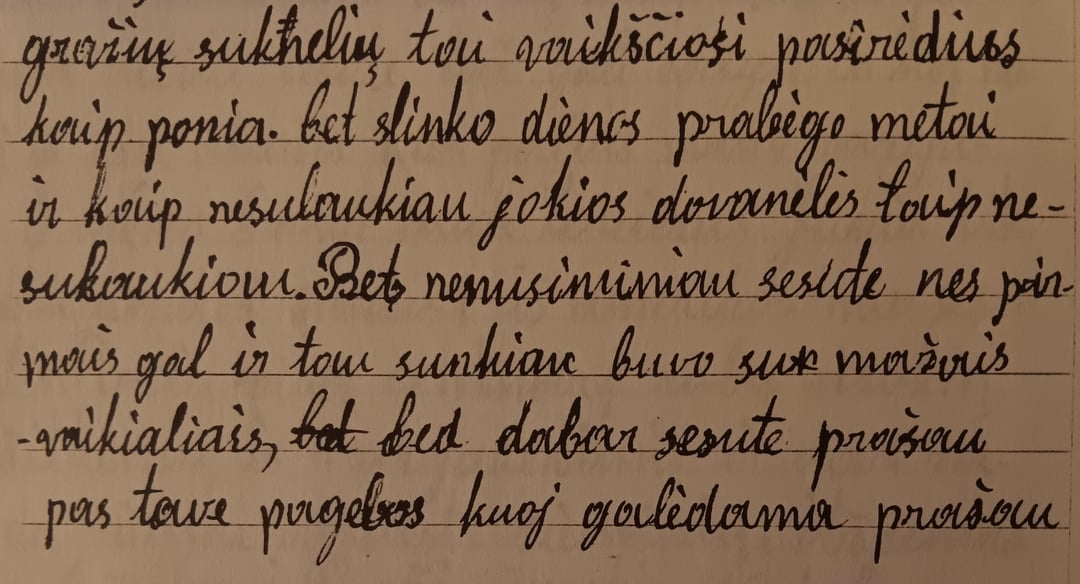 gražių sukhelių tai vaikščiosi pasirėdius
kaip ponia. bet slinko diėnos prabėgo metai
ir kaip nesulaukiau jokios dovanėlės taip ne-
sukaukiau. Bet nenusiminiau sesute nes pir-
mais gal ir tau sunkiau buvo su mažais
-vaikialiais, bed dabar sesute prašau
pas tave pagelbos kuoj galėdama prašau